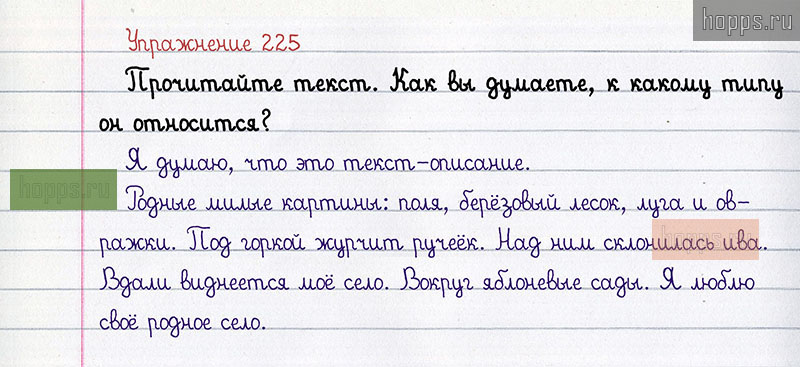 hopps.ru
Упражнение 225
Прочитайте текст. Как вы думаете, к какому типу
он относится?
Я думаю, что это текст-описание.
hopps.ru
Родные милые картины: поля, берёзовый лесок, луга и ов-
ражки. Под горкой журчит ручеёк. Над ним склонилась ива.
hopps.ru
Вдали виднеется моё село. Вокруг яблоневые сады. Я люблю
своё родное село.